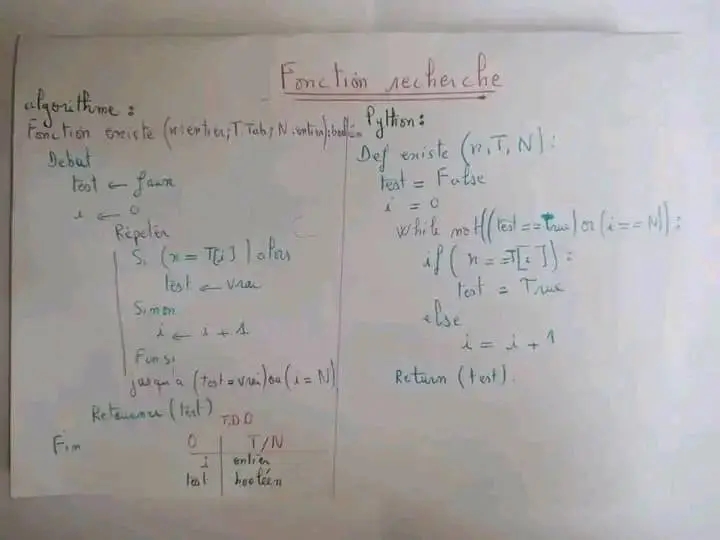 Fonction recherche
algorithme :
Fonction existe (n: entier, T: Tab, N: entier): booléen
Debut
test ← faux
i ← 0
Répéter
Si (n = T[i]) alors
test ← vrai
Sinon
i ← i + 1
Fin si
jusqu'à (test = vrai) ou (i = N)
Retourner (test)
Fin
T.D.O
O T/N
i entier
test booléen
Python :
Def existe (n, T, N) :
test = False
i = 0
While not ((test == True) or (i == N)) :
if (n == T[i]) :
test = True
else
i = i + 1
Return (test).